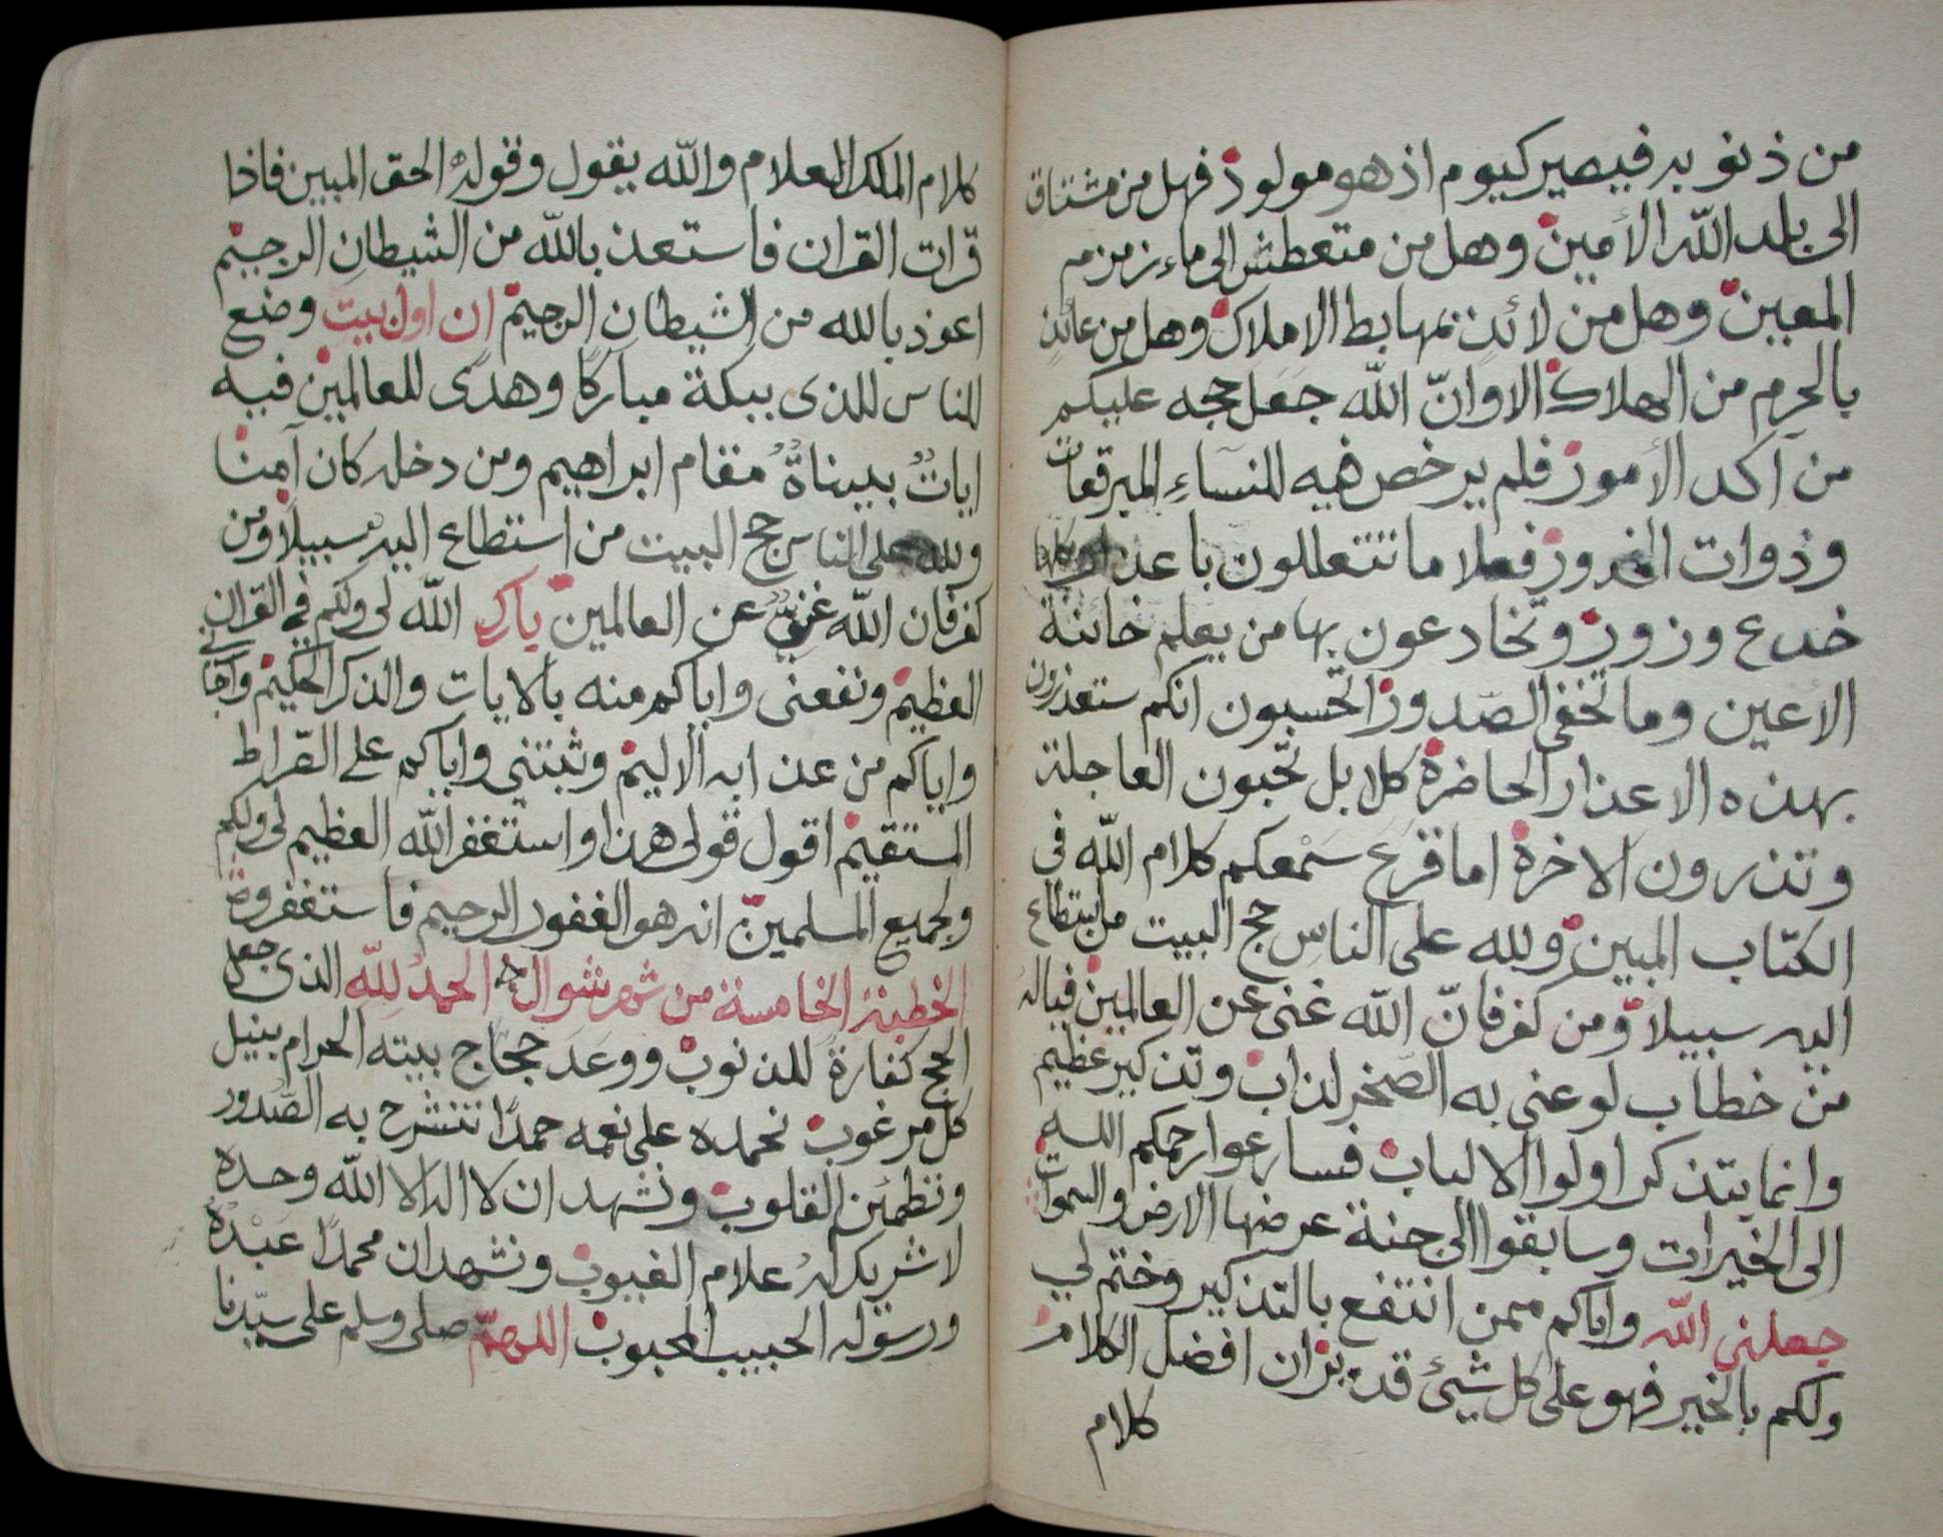 من ذنوبه فيصير كيوم اذ هو مولود فهل من مشتاق
الى بلد الله الأمين وهل من متعطش الى ماء زمزم
المعين وهل من لائذ بمهابط الاملاك وهل من عائذ
بالحرم من الهلاك الا وانّ الله جعل حجه عليكم
من آكد الأمور فلم يرخص فيه للنساء المبرقعات
وذوات الخدور فعلا ما تتعللون باعذار كلها
خدع وزور وتخادعون بها من يعلم خائنة
الأعين وما تخفى الصّدور اتحسبون انكم ستعذرون
بهذه الاعذار الحاضرة كلا بل تحبون العاجلة
وتذرون الاخرة اما قرع سمعكم كلام الله فى
الكتاب المبين ولله على الناس حج البيت من استطاع
اليه سبيلا ومن كفر فانّ الله غنى عن العالمين فياله
من خطاب لو عنى به الصخر لذاب وتذكير عظيم
وانما يتذكر اولوا الالباب فسارعوا رحمكم الله
الى الخيرات وسابقوا الى جنة عرضها الارض والسموات
جعلنى الله واياكم ممن انتفع بالتذكير وختم لي
ولكم بالخير فهو على كل شيئ قدير ان افضل الكلام
كلام
كلام الملك العلام والله يقول وقوله الحق المبين فاذا
قرات القران فاستعذ بالله من الشيطان الرجيم
اعوذ بالله من الشيطان الرجيم ان اول بيت وضع
للناس للذى ببكة مباركا وهدى للعالمين فيه
ايات بيناة مقام ابراهيم ومن دخله كان آمنا
ولله على الناس حج البيت من استطاع اليه سبيلا ومن
كفر فان الله غنى عن العالمين بارك الله لى ولكم في القران
العظيم ونفعنى واياكم منه بالايات والذكر الحكيم واجارني
واياكم من عذابه الاليم وثبتني واياكم على الصّراط
المستقيم اقول قولى هذا واستغفر الله العظيم لى ولكم
ولجميع المسلمين انه هو الغفور الرحيم فاستغفروه
الخطبة الخامسة من شهر شوال الحمد لله الذى جعل
الحج كفارة للذنوب ووعد حجّاج بيته الحرام بنيل
كل مرغوب نحمده على نعمه حمدًا تنشرح به الصّدور
وتطمئن القلوب ونشهد ان لا اله الا الله وحده
لا شريك له علام الغيوب ونشهد ان محمدًا عبده
ورسوله الحبيب المحبوب اللهمّ صلى وسلم على سيّدنا